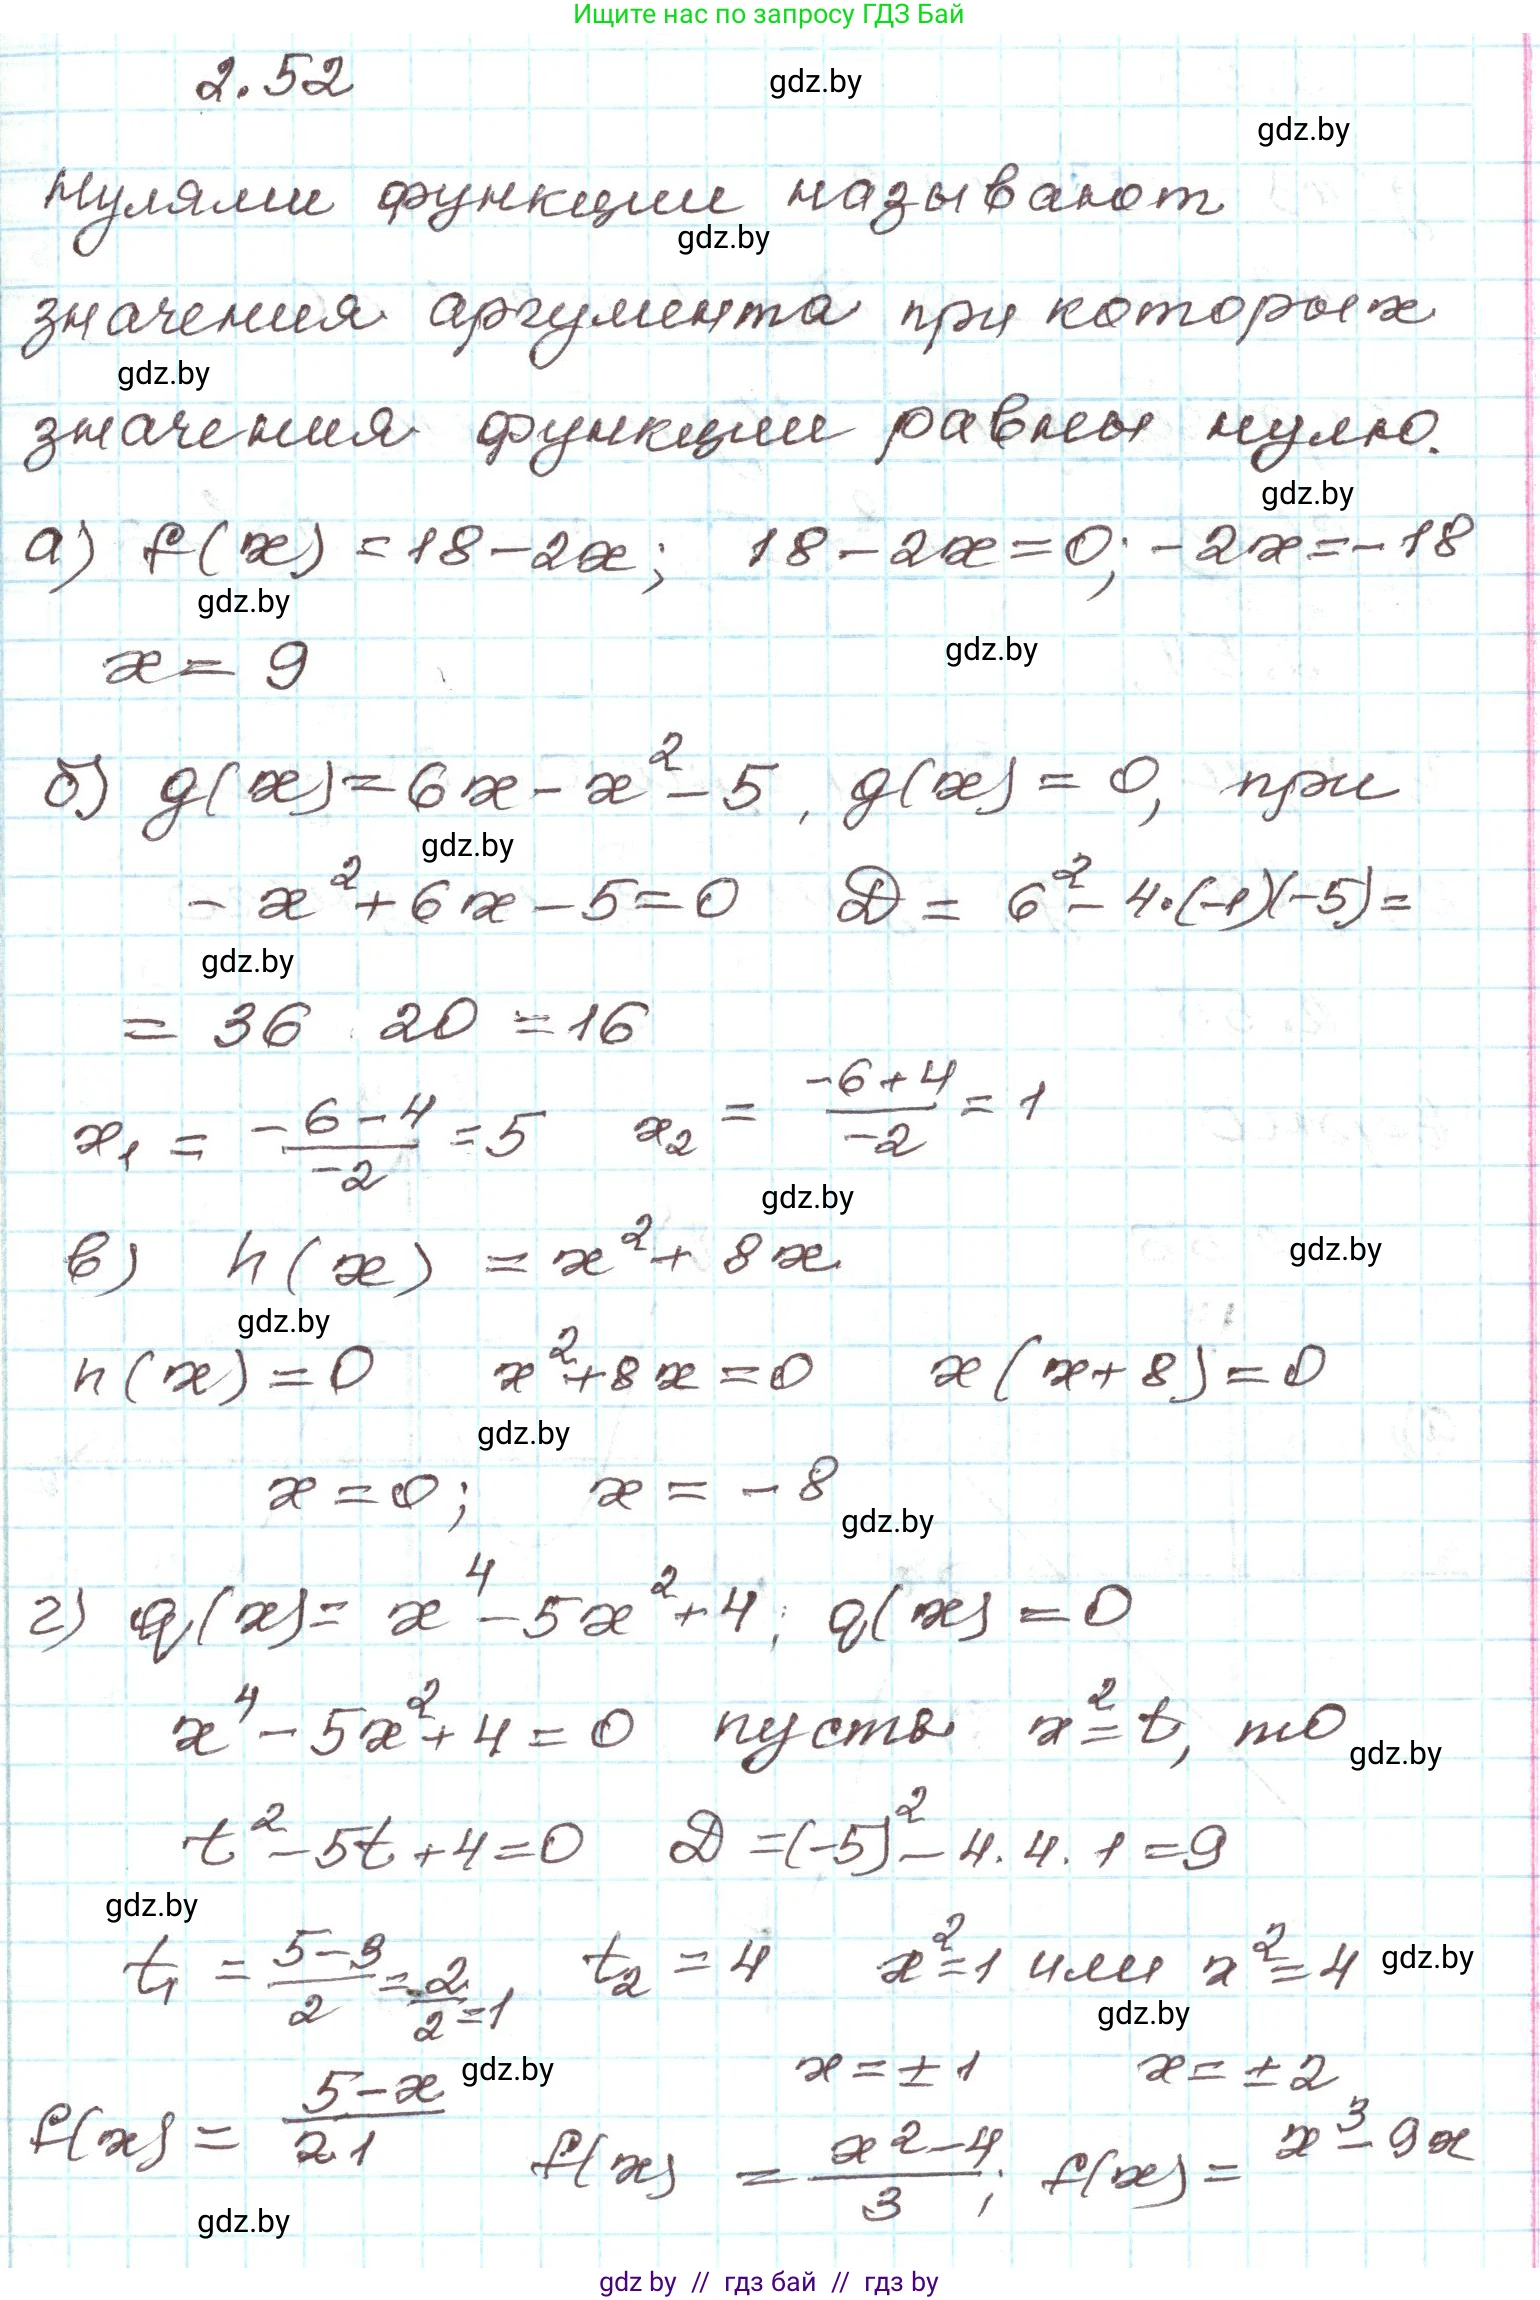 Ищите нас по запросу ГДЗ Бай
2.52
gdz.by
gdz.by
Нулями функции называют
gdz.by
значения аргумента при которых
gdz.by
значения функции равны нулю.
gdz.by
а) f(x) = 18 - 2x; 18 - 2x = 0; -2x = -18
gdz.by
x = 9
gdz.by
б) g(x) = 6x - x² - 5, g(x) = 0, при
gdz.by
- x² + 6x - 5 = 0 D = 6² - 4·(-1)(-5) =
gdz.by
= 36 20 = 16
x₁ = (-6-4)/(-2) = 5 x₂ = (-6+4)/(-2) = 1
gdz.by
в) h(x) = x² + 8x
gdz.by
gdz.by
h(x) = 0 x² + 8x = 0 x(x+8) = 0
gdz.by
x = 0; x = -8
gdz.by
г) q(x) = x⁴ - 5x² + 4; q(x) = 0
x⁴ - 5x² + 4 = 0 пусть x² = t, то
gdz.by
t² - 5t + 4 = 0 D = (-5)² - 4·4·1 = 9
gdz.by
t₁ = (5-3)/2 = 2/2 = 1 t₂ = 4 x² = 1 или x² = 4
gdz.by
gdz.by
gdz.by
x = ±1 x = ±2
f(x) = (5-x)/(2.1) f(x) = (x²-4)/3; f(x) = x³ - 9x
gdz.by
gdz by // гдз бай // гдз by